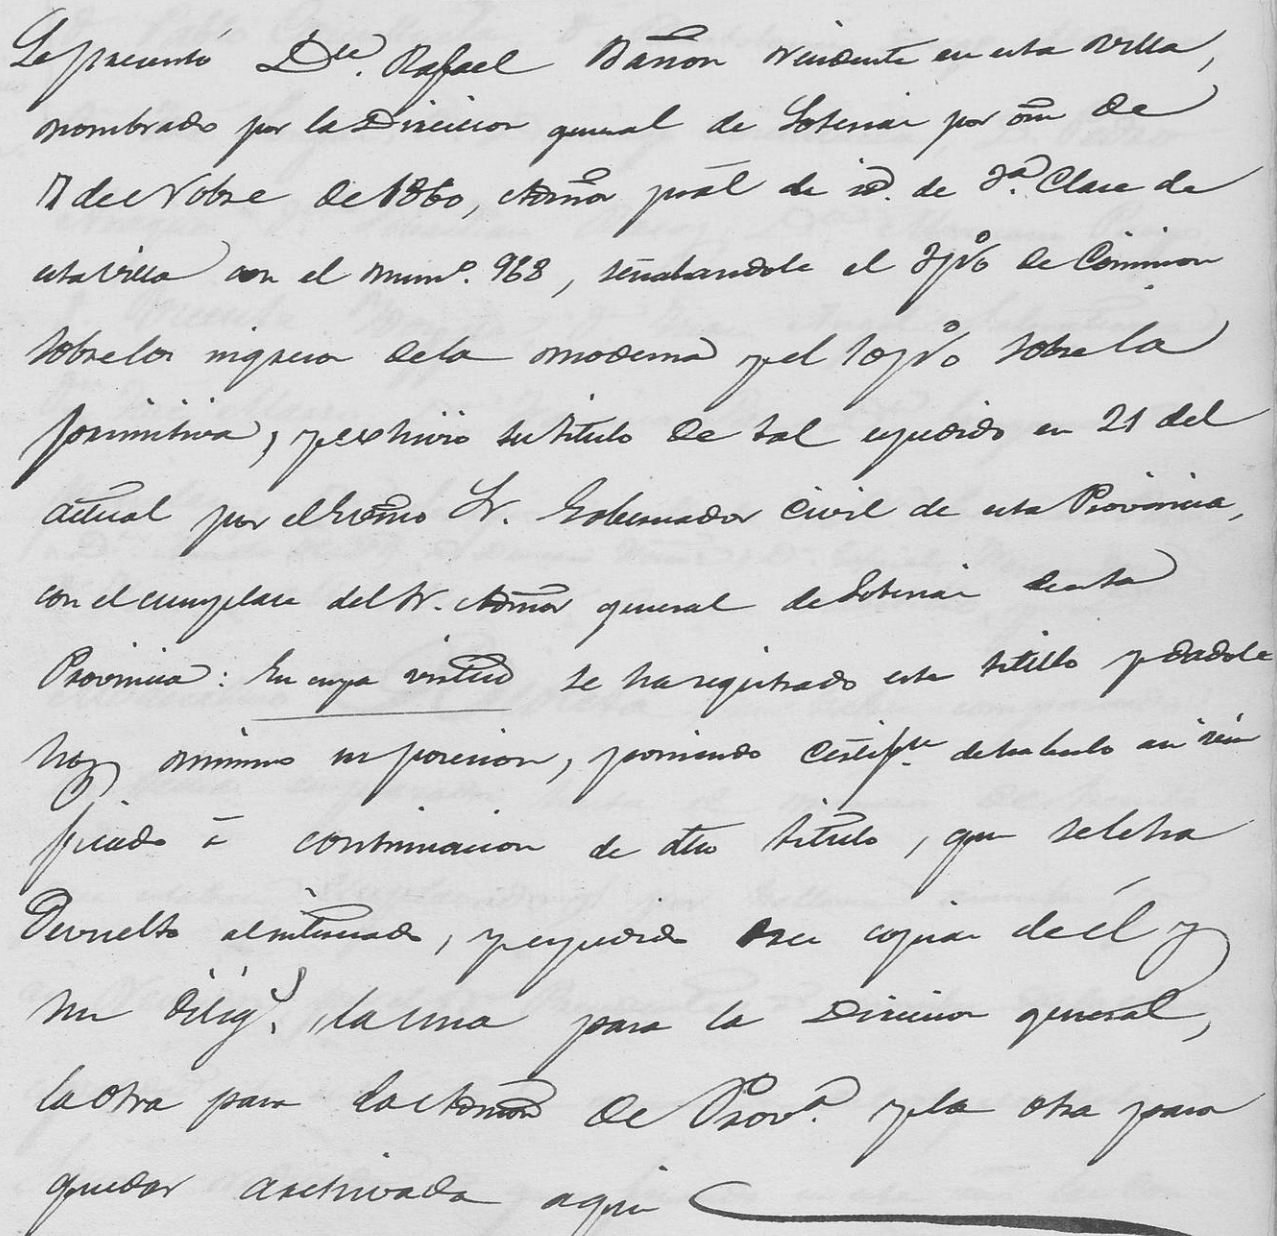 Se presentó Dn. Rafael Bañon residente en esta villa,
nombrado por la Direccion general de Loterias por orn de
17 de Nobre de 1860, Admor pral de id. de 3ª. Clase de
esta villa con el num.º 968, señalandole el 3 p% de Comision
sobre los ingresos de la moderna y el 10 p% sobre la
primitiva, y exhivió su titulo de tal espedido en 21 del
actual por el Excmo Sr. Gobernador Civil de esta Provincia,
con el cumplase del Sr. Admor general de Loterias de esta
Provincia: En cuya virtud se ha registrado este titulo y dadole
hoy mismo su posesion, poniendo Certif.
ficado á continuacion de dho titulo, que se le ha
Devuelto al interesado, y espedido tres copias de él y
su dilig.ª, la una para la Direccion general,
la otra para la Admon de Prov.ª y la otra para
quedar archivada aqui